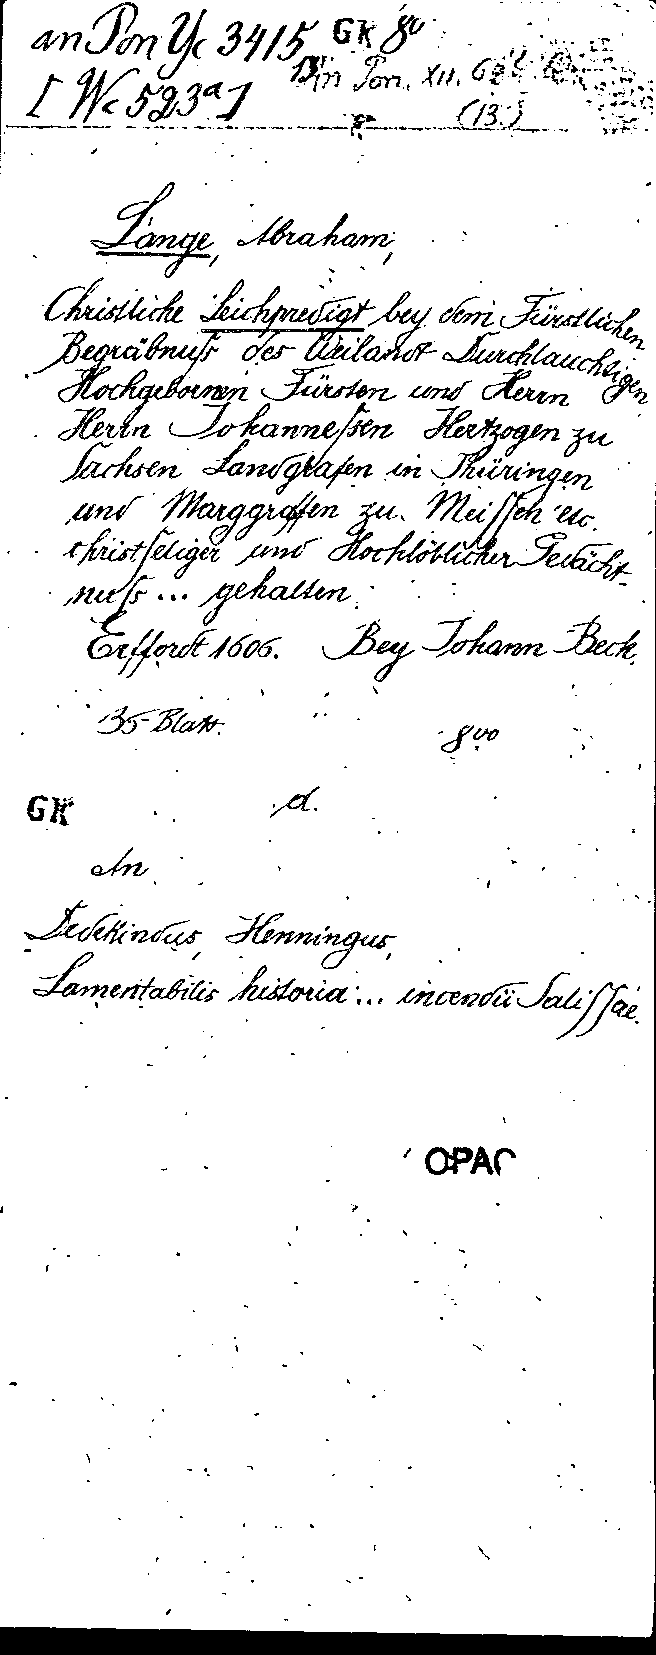 an Pon Yc 3415 GK 8°
[Wc 523a] in Pon. XII.
(13.)
Lange, Abraham,
Christliche Leichpredigt bey dem Fürstlichen
Begräbnuss des Weilandt Durchlauchtigen
Hochgebornen Fürsten und Herrn
Herrn Johannessen Hertzogen zu
Sachsen Landgrafen in Thüringen
und Marggraffen zu Meissen etc.
christseliger und Hochlöblicher Gedächt-
nuss ... gehalten.
Erffordt 1606. Bey Johann Beck.
35 Blatt. 8vo
GK d.
An
Dedekindus, Henningus,
Lamentabilis historia ... incendii Salissae.
OPAC